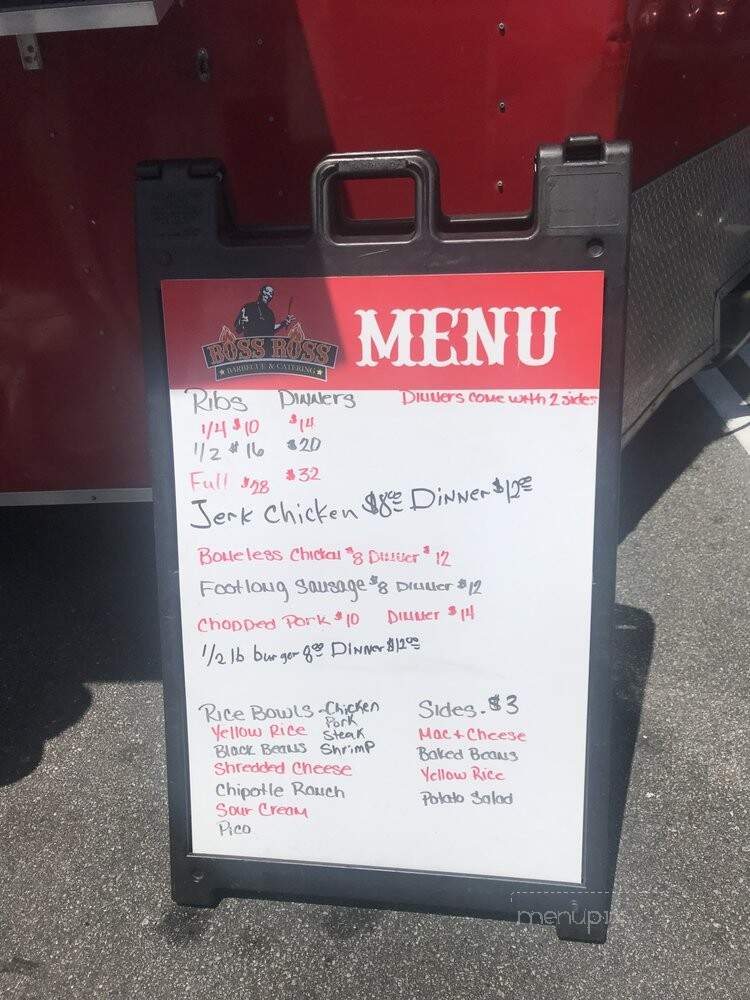 BOSS ROSS
BARBECUE & CATERING
MENU
Ribs Dinners Dinners come with 2 sides
1/4 $10 $14
1/2 $16 $20
Full $28 $32
Jerk Chicken $8.00 Dinner $12.00
Boneless Chicken $8 Dinner $12
Footlong Sausage $8 Dinner $12
Chopped Pork $10 Dinner $14
1/2 lb burger 8.00 Dinner $12.00
Rice Bowls - Chicken
Pork
Yellow Rice Steak
Black Beans Shrimp
Shredded Cheese
Chipotle Ranch
Sour Cream
Pico
Sides. $3
Mac + Cheese
Baked Beans
Yellow Rice
Potato Salad